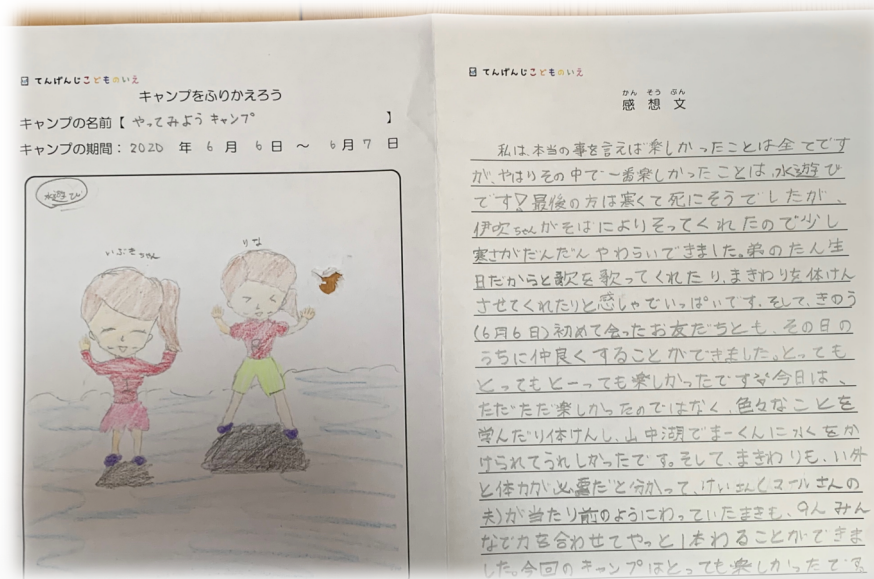 てんげんじこどものいえ
キャンプをふりかえろう
キャンプの名前【 やってみようキャンプ 】
キャンプの期間： 2020 年 6 月 6 日 ～ 6 月 7 日
水遊び
いぶきちゃん
りな
てんげんじこどものいえ
かん そう ぶん
感 想 文
私は、本当の事を言えば楽しかったことは全てです
が、やはりその中で一番楽しかったことは、水遊び
です!最後の方は寒くて死にそうでしたが、
伊吹ちゃんがそばによりそってくれたので少し
寒さがだんだんやわらいできました。弟のたん生
日だからと歌を歌ってくれたり、まきわりを体けん
させてくれたりと感しゃでいっぱいです。そして、きのう
(6月6日)初めて会ったお友だちとも、その日の
うちに仲良くすることができました。とっても
とってもとーっても楽しかったです 今日は、
ただただ楽しかったのではなく、色々なことを
学んだり体けんし、山中湖でまーくんに水をか
けられてうれしかったです。そして、まきわりも、い外
と体力が必要だと分かって、けいさん(マールさんの
夫)が当たり前のようにわっていたまきも、9人みん
なで力を合わせてやっと1本わることができま
した。今回のキャンプはとっても楽しかったです